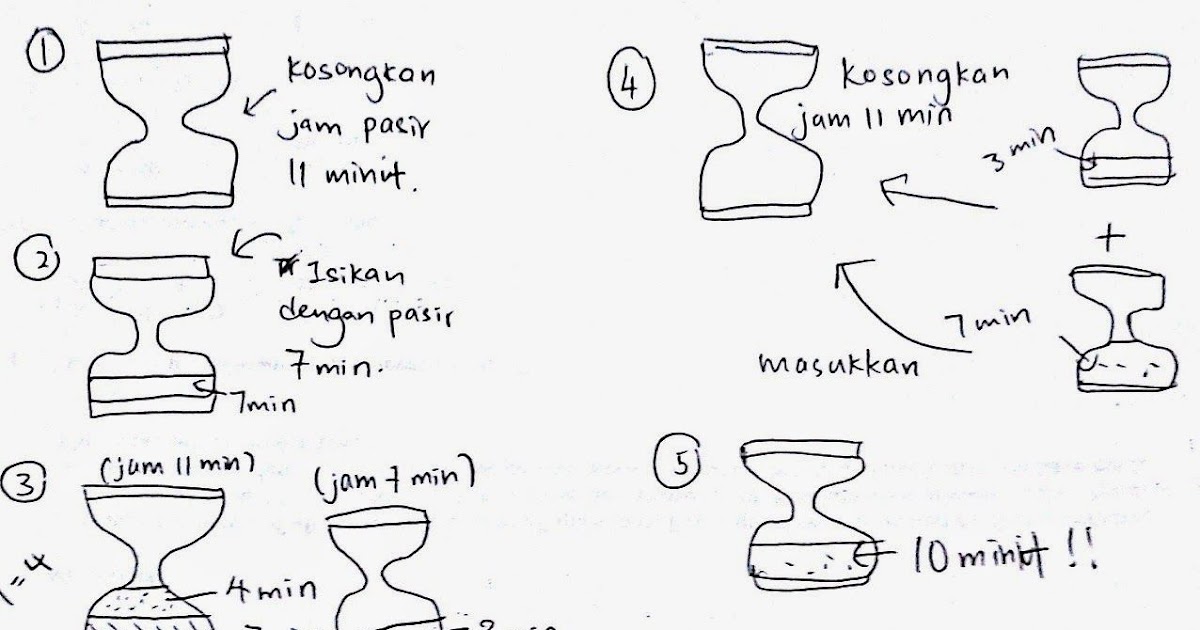 1
Kosongkan
jam pasir
11 minit.
2
Isikan
dengan pasir
7 min.
7min
3
(jam 11 min)
(jam 7 min)
= 4
4 min
4
Kosongkan
jam 11 min
3 min
+
7 min
masukkan
5
10 minit !!